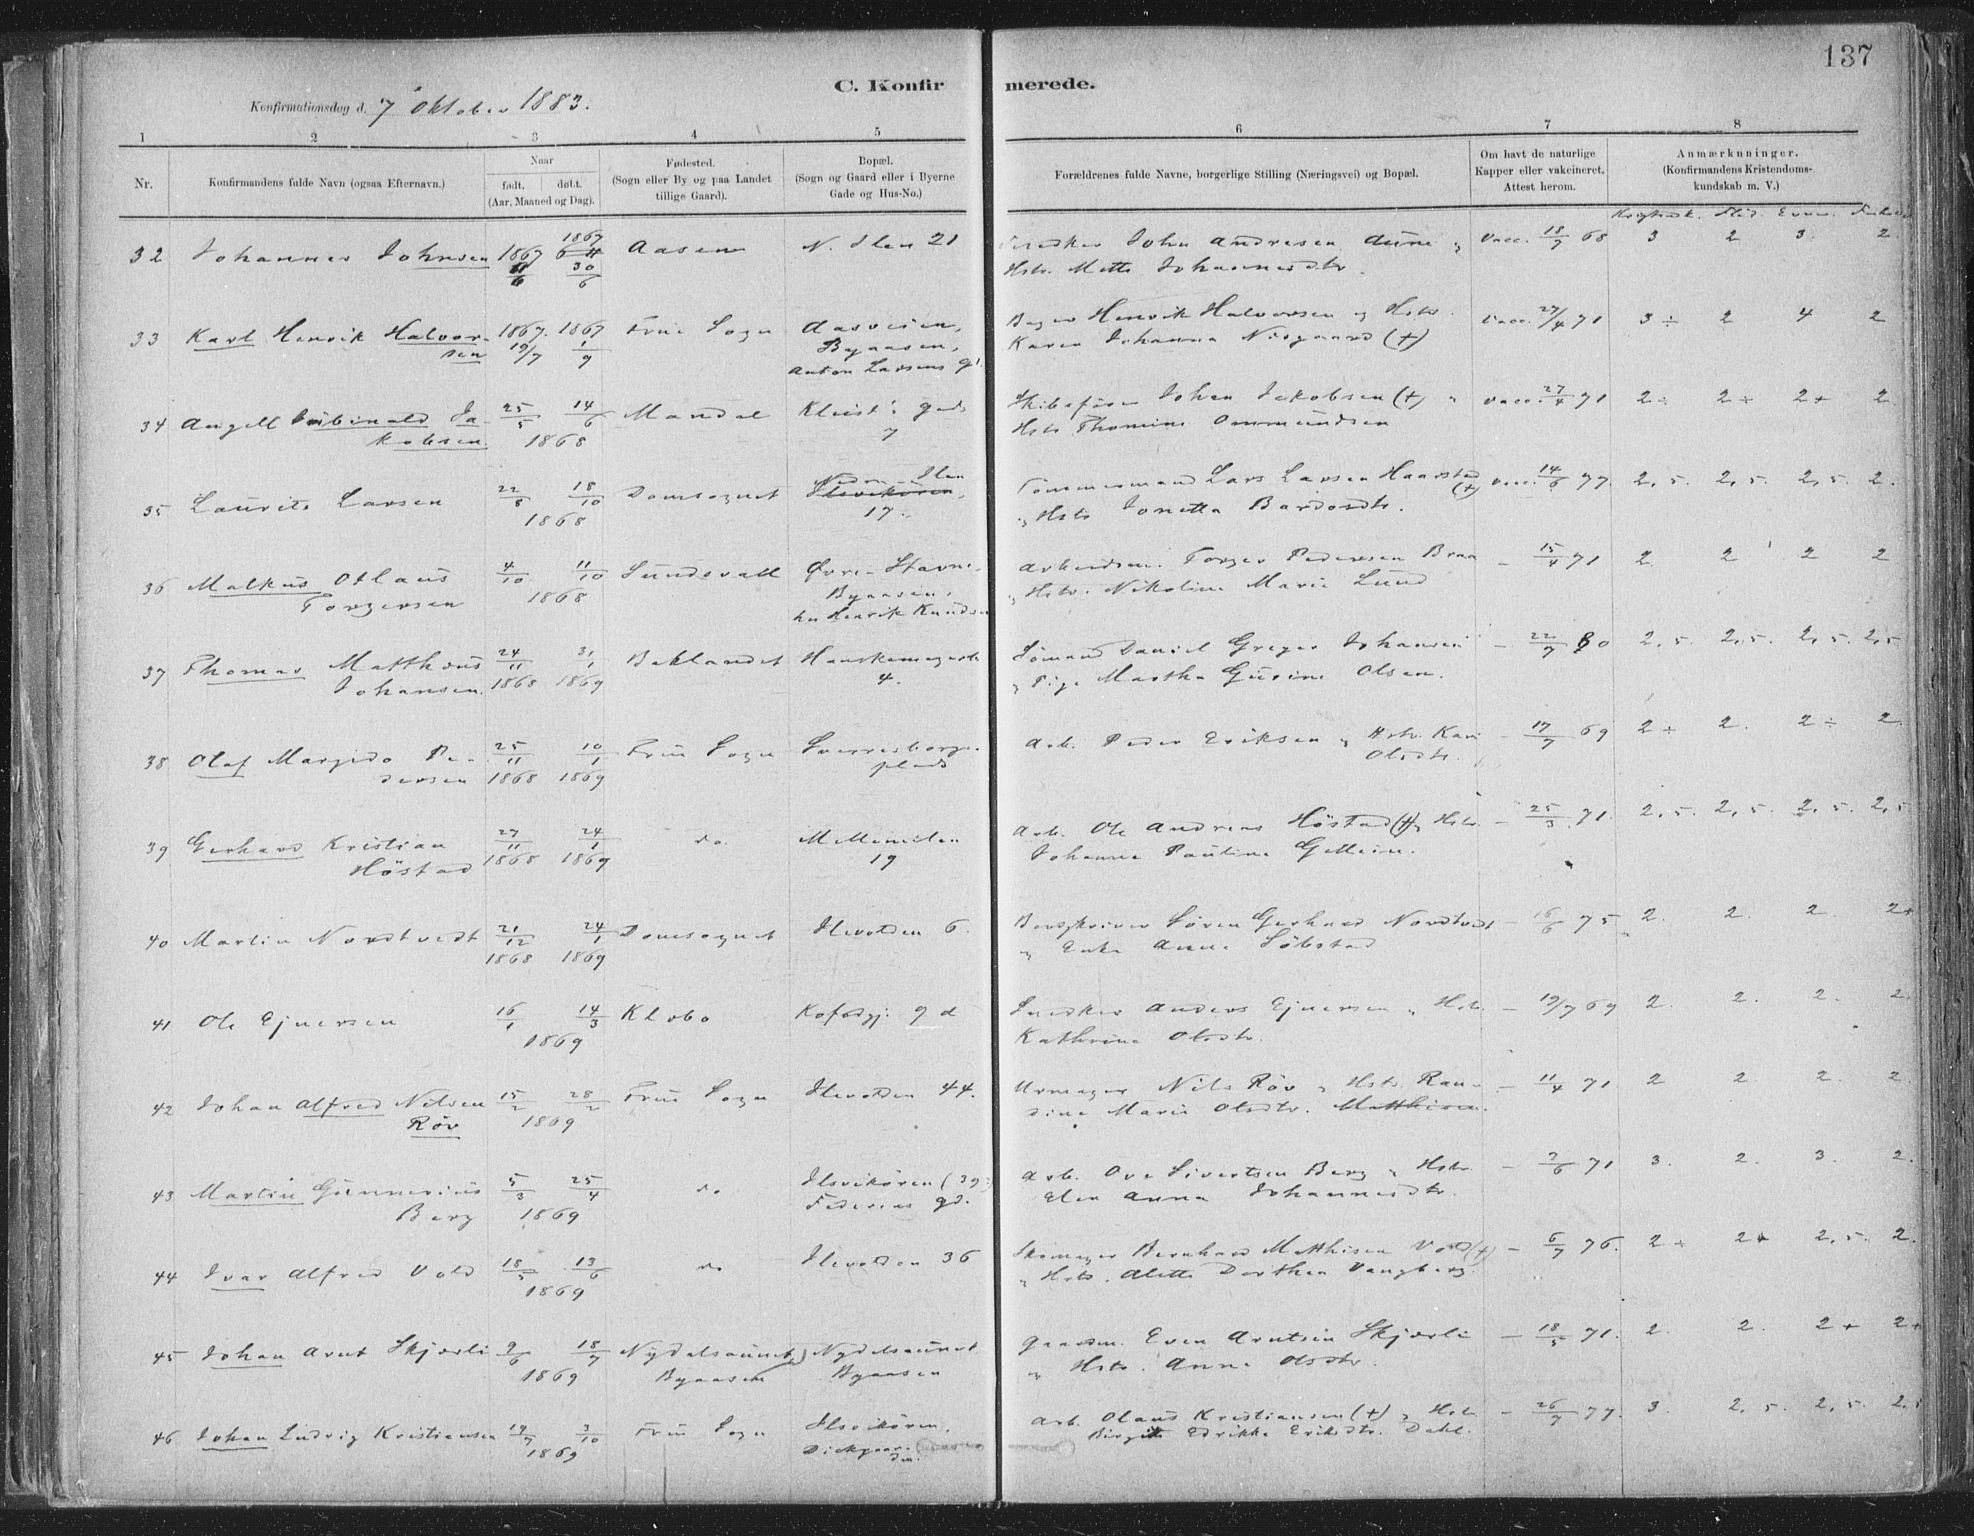 137
C. Konfirmerede.
Konfirmationsdag d. 7 Oktober 1883.
1 2 3 4 5 6 7 8
Nr. Konfirmandens fulde Navn (ogsaa Efternavn.) Naar født. døbt. (Aar, Maaned og Dag). Fødested. (Sogn eller By og paa Landet tillige Gaard). Bopæl. (Sogn og Gaard eller i Byerne Gade og Hus-No.) Forældrenes fulde Navne, borgerlige Stilling (Næringsvei) og Bopæl. Om havt de naturlige Kapper eller vakcineret. Attest herom. Anmærkninger. (Konfirmandens Kristendomskundskab m. V.)
32 Johannes Johnsen 1867 6 1867 30/6 Aasen N. Ilen 21 Snedker John Andresen Aune og Vacc. 18/7 68 3 2 3. 2.
Hstr. Mette Johannesdtr.
33 Karl Henrik Halvor- 1867. 1867 Frue Sogn Aasveien, Bager Henrik Halvorsen og Hstr. Vacc. 27/4 71 3 ÷ 2 4 2
sen 19/7 1/9 Byaasen, Karen Johanna Nisgaard (+)
Anton Larsens gd.
34 Angell Ja- 25/5 14/6 Mandal gade Skibsfører Johan Jakobsen (+) " vacc. 27/4 71 2 ÷ 2 ÷ 2 + 2
kobsen. 1868 7 Hstr Thomine Ommundsen
35 Laurits Larsen 22/8 18/10 Domsognet Nedre Ilen Ilsvikøren, Tømmermand Lars Larsen Haarstad (+) vacc. 14/6 77. 2,5. 2,5. 2,5. 2.
1868 17. " Hstr Jonetta Bardosdtr.
36 Malkus Otlaus 4/10 11/10 Sundsvall Øvre-Stavne, Arbeidsm. Torger Pedersen Braa – 15/4 71 2. 2 2 2
Torgersen 1868 Byaasen, " Hstr. Nikoline Marie Lund
hos Henrik Knudsen
37 Thomas Matthæus 24/11 31/1 Baklandet Sømand Daniel Greger Johansen – 22/7 80 2,5. 2,5. 2,5. 2,5
Johansen. 1868 1869 4. " Pige Martha Gurine Olsen.
38 Olaf Margido Pe- 25/11 10/1 Frue Sogn Sverresborgs- Arb. Peder Eriksen " Hstr. Kari – 17/7 69 2 ÷ 2. 2 ÷ 2.
dersen 1868 1869 plads Olsdtr.
39 Gerhard Kristian 27/11 24/1 do. Mellemilen Arb. Ole Andreas Høstad (+) " Hstr. – 25/3 71. 2,5. 2,5. 2,5. 2,5
Høstad 1868 1869 19 Johanna Pauline
40 Martin Nordtvedt 21/12 24/1 Domsognet Ilevolden 6. Søren Gerhard Nordtvedt – 16/6 75 2. 2. 2 2+
1868 1869 " Enke Anne Søbstad
41 Ole Ejnersen 16/1 14/3 Klæbo gd Snedker Anders Ejnersen " Hstr. – 19/7 69 2. 2. 2. 2.
1869 Kathrine Olsdtr.
42 Johan Alfred Nilsen 15/2 28/2 Frue Sogn Ilevolden 44. Urmager Nils Røv " Hstr. Ran- – 11/4 71 2 2 2. 2.
Røv 1869 dine Marie Olsdtr. Matthisen.
43 Martin Gunnerius 5/3 25/4 do Ilsvikøren (39) Arb. Ove Sivertsen Berg " Hstr – 71 3. 2. 3. 2.
Berg 1869 gd. Elen Anna Johannesdtr.
44 Ivar Alfred Vold 18/5 13/6 do Ilevolden 36 Skomager Bernhard Matthisen Vold (+) – 6/7 76. 2 ÷ 2 + 2,5. 2.
1869 " Hstr. Alette Dorthea Vangberg.
45 Johan Arnt Skjærli 9/6 18/7 Nydalsaunet, Nydalsaunet Gaardm. Even Arntsen Skjærli – 18/5 71. 2. 2. 2 + 2 +
1869 Byaasen Byaasen " Hstr. Anne Olsdtr.
46 Johan Ludvig Kristiansen 19/7 3/10 Frue Sogn Ilsvikøren, Arb. Olaus Kristiansen (+) " Hstr – 26/7 77. 3. 2,5. 2,5. 2,5
1869 Birgitte Edrikke Eriksdtr. Dahl.